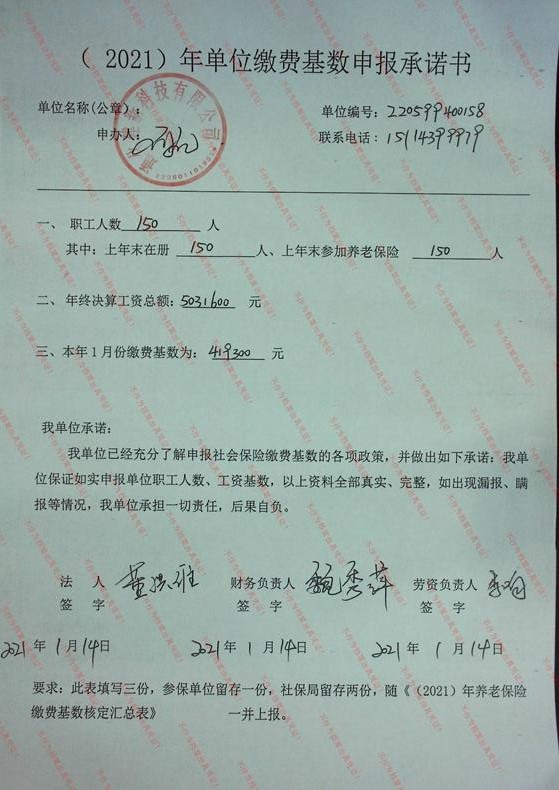 （ 2021）年单位缴费基数申报承诺书
单位名称(公章)：
单位编号：220599400158
科技有限公司
申办人：
联系电话：15114399979
一、 职工人数 150 人
其中：上年末在册 150 人、上年末参加养老保险 150 人
二、年终决算工资总额：5031600 元
三、本年1月份缴费基数为：419300 元
我单位承诺：
我单位已经充分了解申报社会保险缴费基数的各项政策，并做出如下承诺：我单
位保证如实申报单位职工人数、工资基数，以上资料全部真实、完整，如出现漏报、瞒
报等情况，我单位承担一切责任，后果自负。
法 人 财务负责人 魏秀萍 劳资负责人
签 字 签 字 签 字
2021 年 1 月 14 日 2021 年 1 月 14 日 2021 年 1 月 14 日
要求：此表填写三份，参保单位留存一份，社保局留存两份，随《（2021）年养老保险
缴费基数核定汇总表》 一并上报。